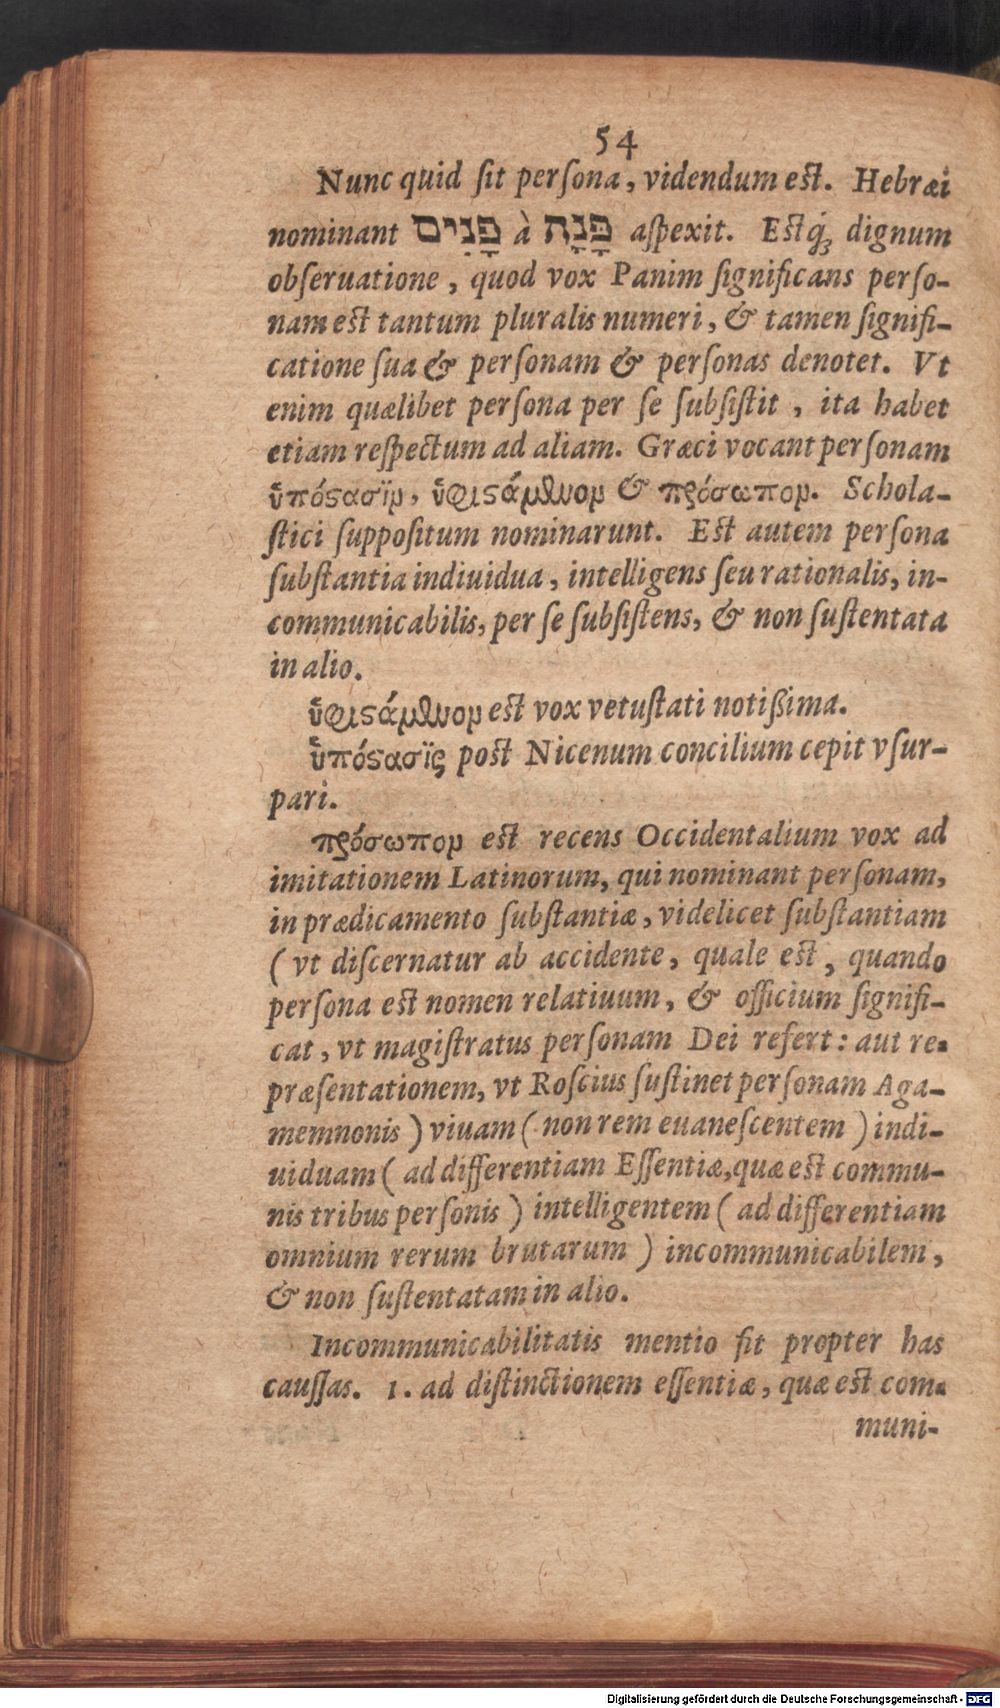 54
Nunc quid ſit perſona, videndum eſt. Hebræi
nominant פָּנִים à פָּנָה aſpexit. Eſtq́; dignum
obſeruatione, quod vox Panim ſignificans perſo-
nam est tantum pluralis numeri, & tamen ſignifi-
catione ſua & perſonam & perſonas denotet. Vt
enim quælibet perſona per ſe ſubſiſtit, ita habet
etiam reſpectum ad aliam. Græci vocant perſonam
ὑπόϛασϊν, ὑφιϛάμενον & πρόσωπον. Schola-
ſtici ſuppoſitum nominarunt. Eſt autem perſona
ſubſtantia indiuidua, intelligens ſeu rationalis, in-
communicabilis, per ſe ſubſiſtens, & non ſuſtentata
in alio.
ὑφιϛάμενον eſt vox vetuſtati notißima.
ὑπόϛασϊς poſt Nicenum concilium cepit vſur-
pari.
πρόσωπον eſt recens Occidentalium vox ad
imitationem Latinorum, qui nominant perſonam,
in prædicamento ſubſtantiæ, videlicet ſubſtantiam
(vt diſcernatur ab accidente, quale eſt, quando
perſona eſt nomen relatiuum, & officium ſignifi-
cat, vt magiſtratus perſonam Dei refert: aut re-
præſentationem, vt Roſcius ſuſtinet perſonam Aga-
memnonis) viuam (non rem euaneſcentem) indi-
uiduam (ad differentiam Eſſentiæ, quæ eſt commu-
nis tribus perſonis) intelligentem (ad differentiam
omnium rerum brutarum) incommunicabilem,
& non ſuſtentatam in alio.
Incommunicabilitatis mentio fit propter has
cauſſas. 1. ad diſtinctionem eſſentiæ, quæ eſt com-
muni-
Digitalisierung gefördert durch die Deutsche Forschungsgemeinschaft - DFG